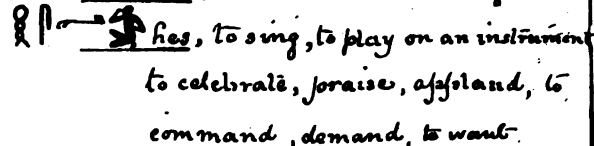 𓎛𓋴𓂝𓀁 hes, to sing, to play on an instrument
to celebrate, praise, applaud, to
command, demand, to want.